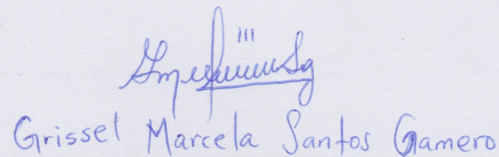 Grissel Marcela Santos Gamero